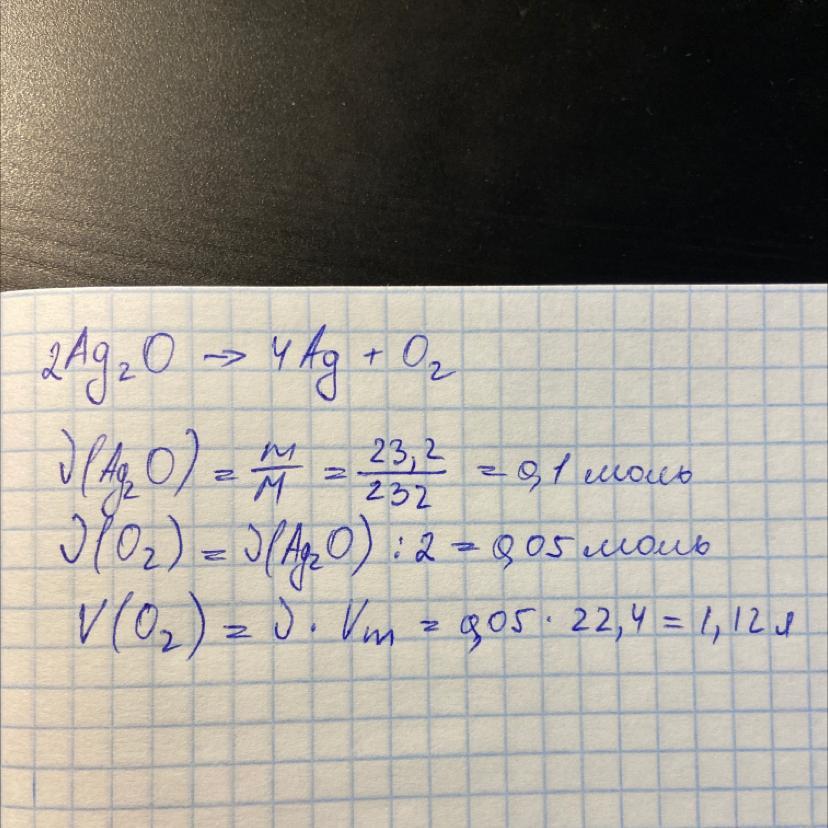 2Ag₂O → 4Ag + O₂
ν(Ag₂O) = m/M = 23,2/232 = 0,1 моль
ν(O₂) = ν(Ag₂O) : 2 = 0,05 моль
V(O₂) = ν · Vm = 0,05 · 22,4 = 1,12 л